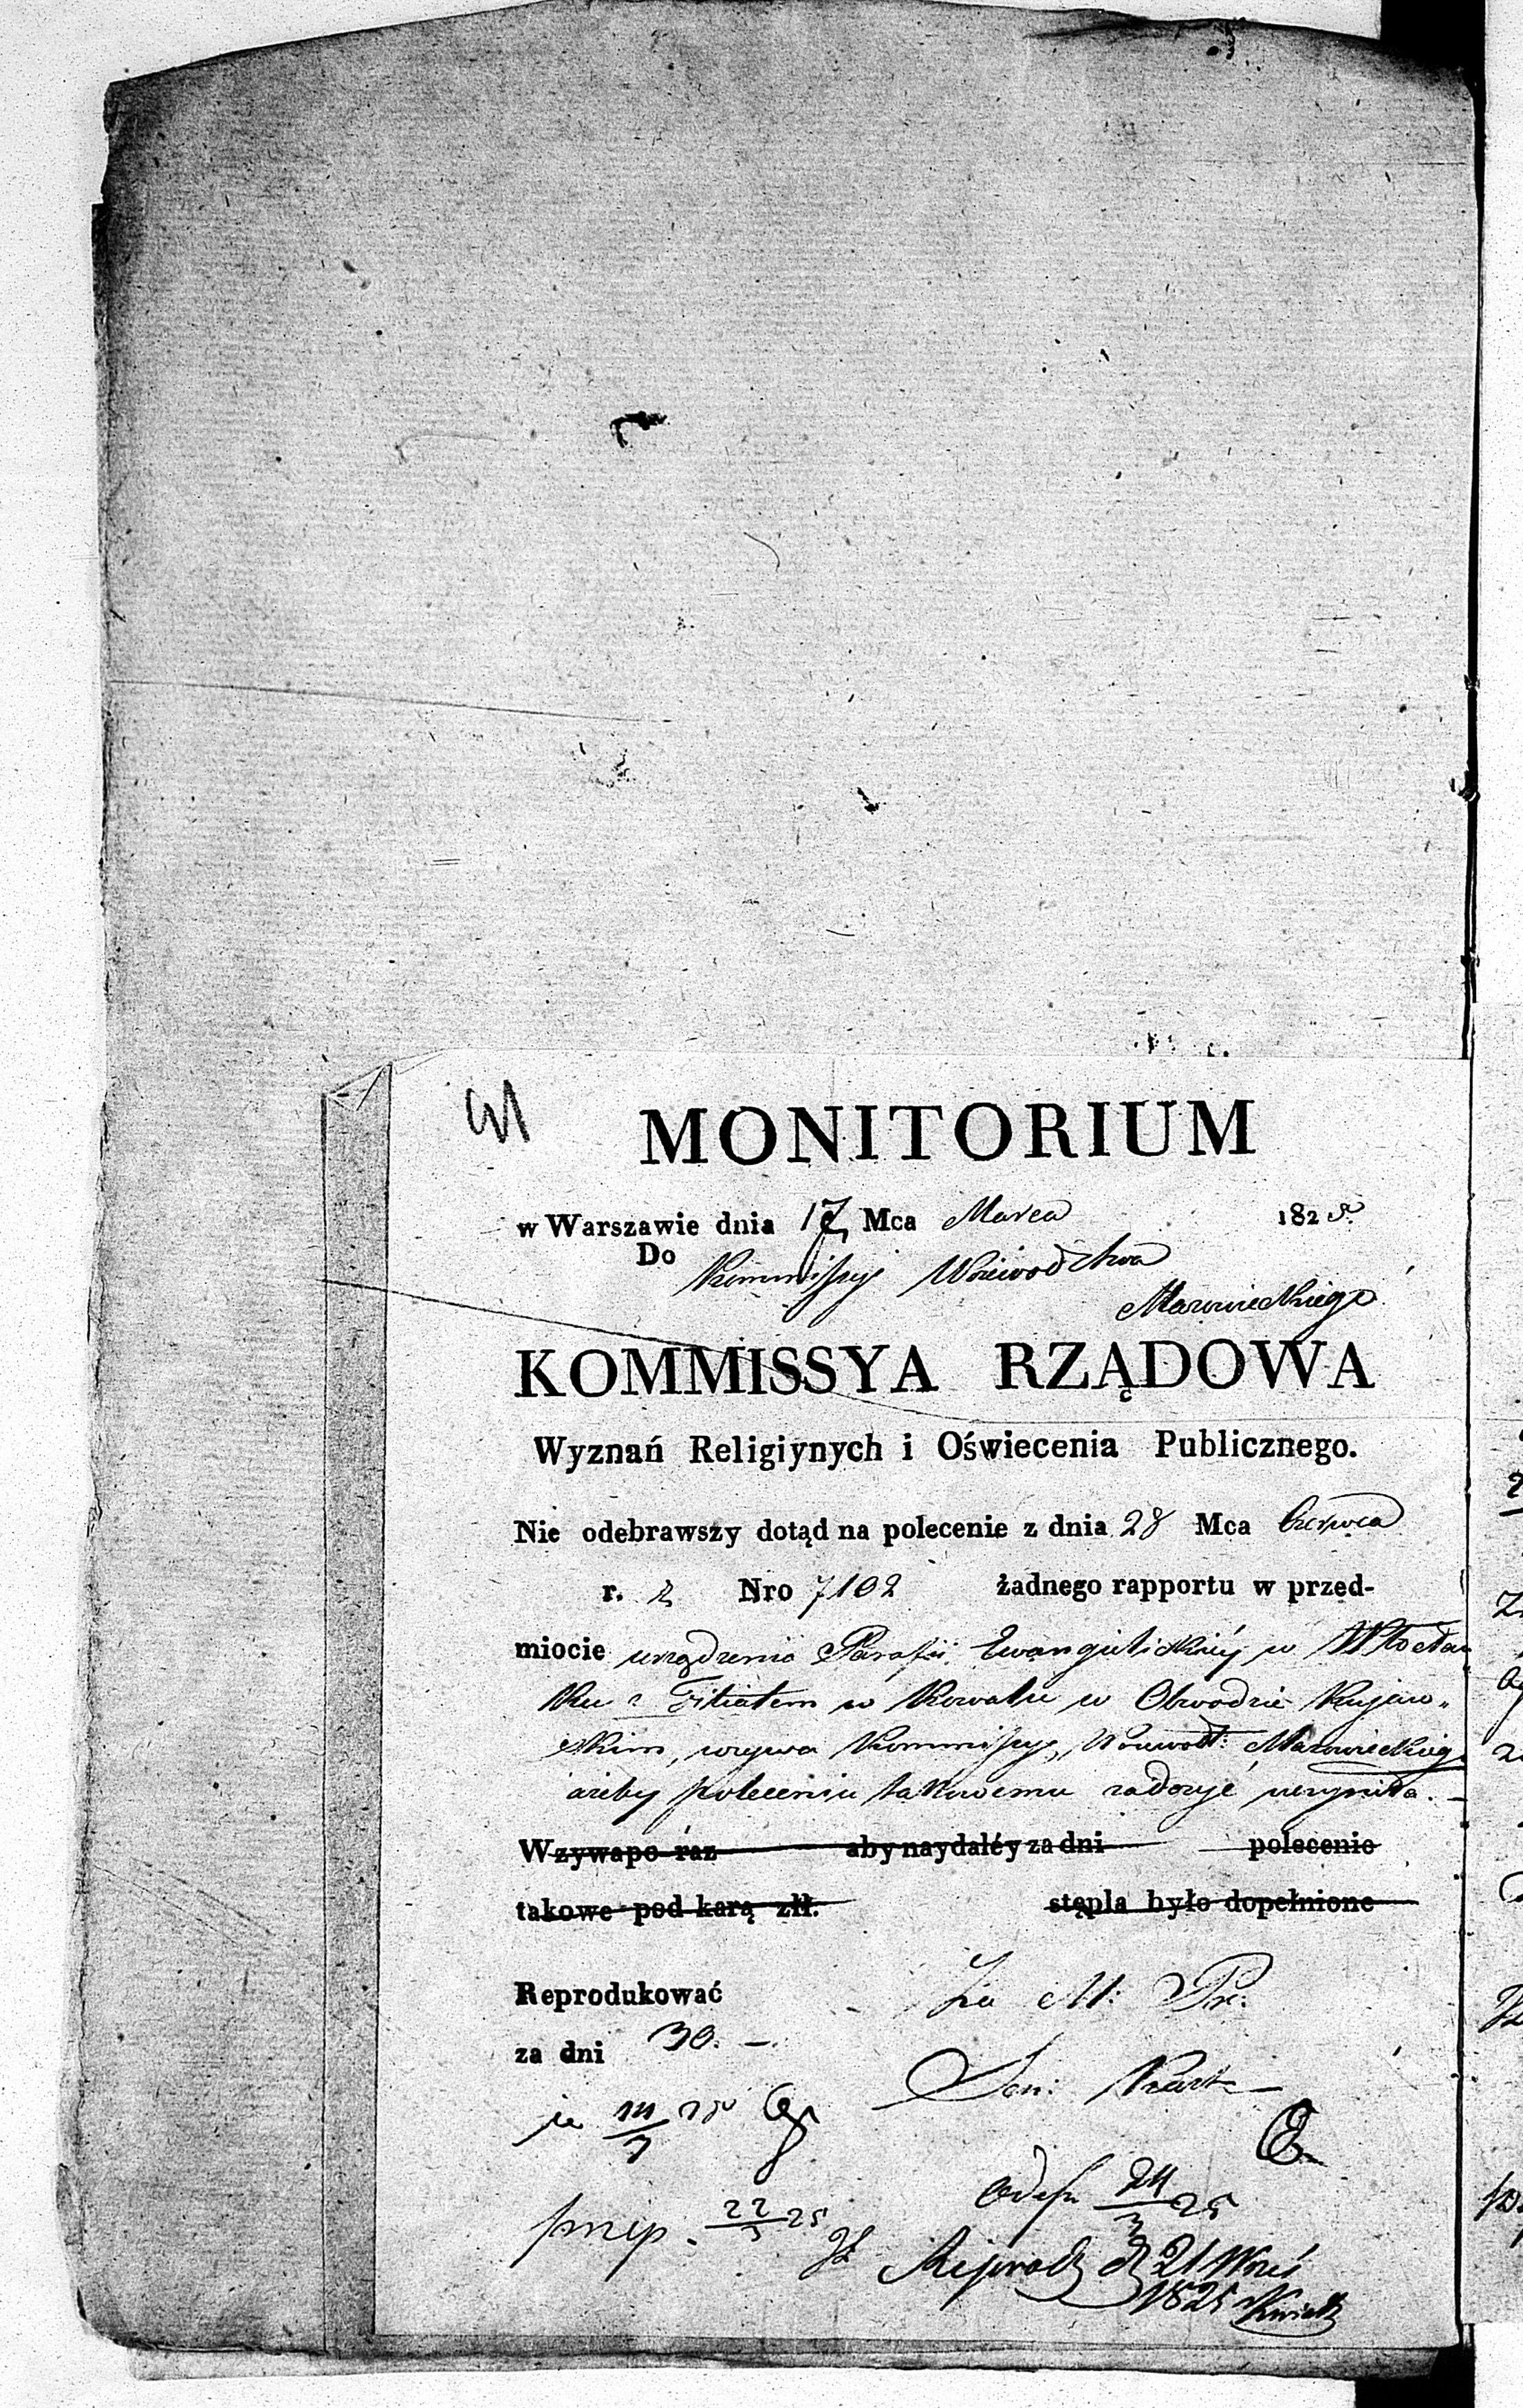 MONITORIUM
w Warszawie dnia 17 Mca Marca 1825.
Do Kommissyi Woiewództwa
Mazowieckiego
KOMMISSYA RZĄDOWA
Wyznań Religiynych i Oświecenia Publicznego.
Nie odebrawszy dotąd na polecenie z dnia 28 Mca Czerwca
r. z. Nro 7102 żadnego rapportu w przed-
miocie urządzenia Parafii Ewangelickiéy w Włocław
ku z Filiałem w Kowalu w Obwodzie Kujaw-
skim, wzywa Kommissyę Woiewodt: Mazowieckieg
ażeby poleceniu takowemu zadosyć uczyniła. -
Wzywa po raz aby naydaléy za dni polecenie
takowe pod karą złł. stępla było dopełnione
Reprodukować
za dni 30. -
Za M: Pr:
22/3 25
24/3 25
d 21 Wrześ
1825